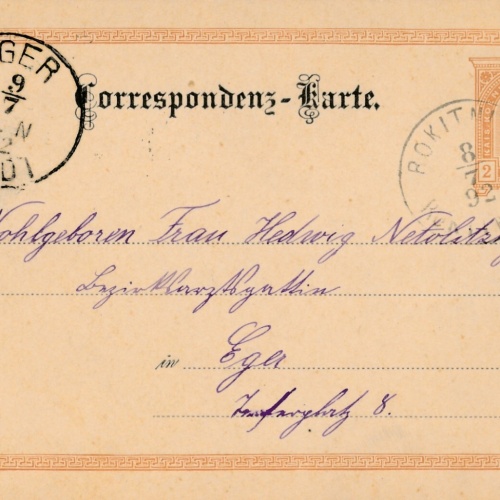 EGER
9
7
Correspondenz-Karte.
ROKITN
8
7
92
2
Wohlgeboren Frau Hedwig Netolitzky
Bezirksarztsgattin
in Eger
8.